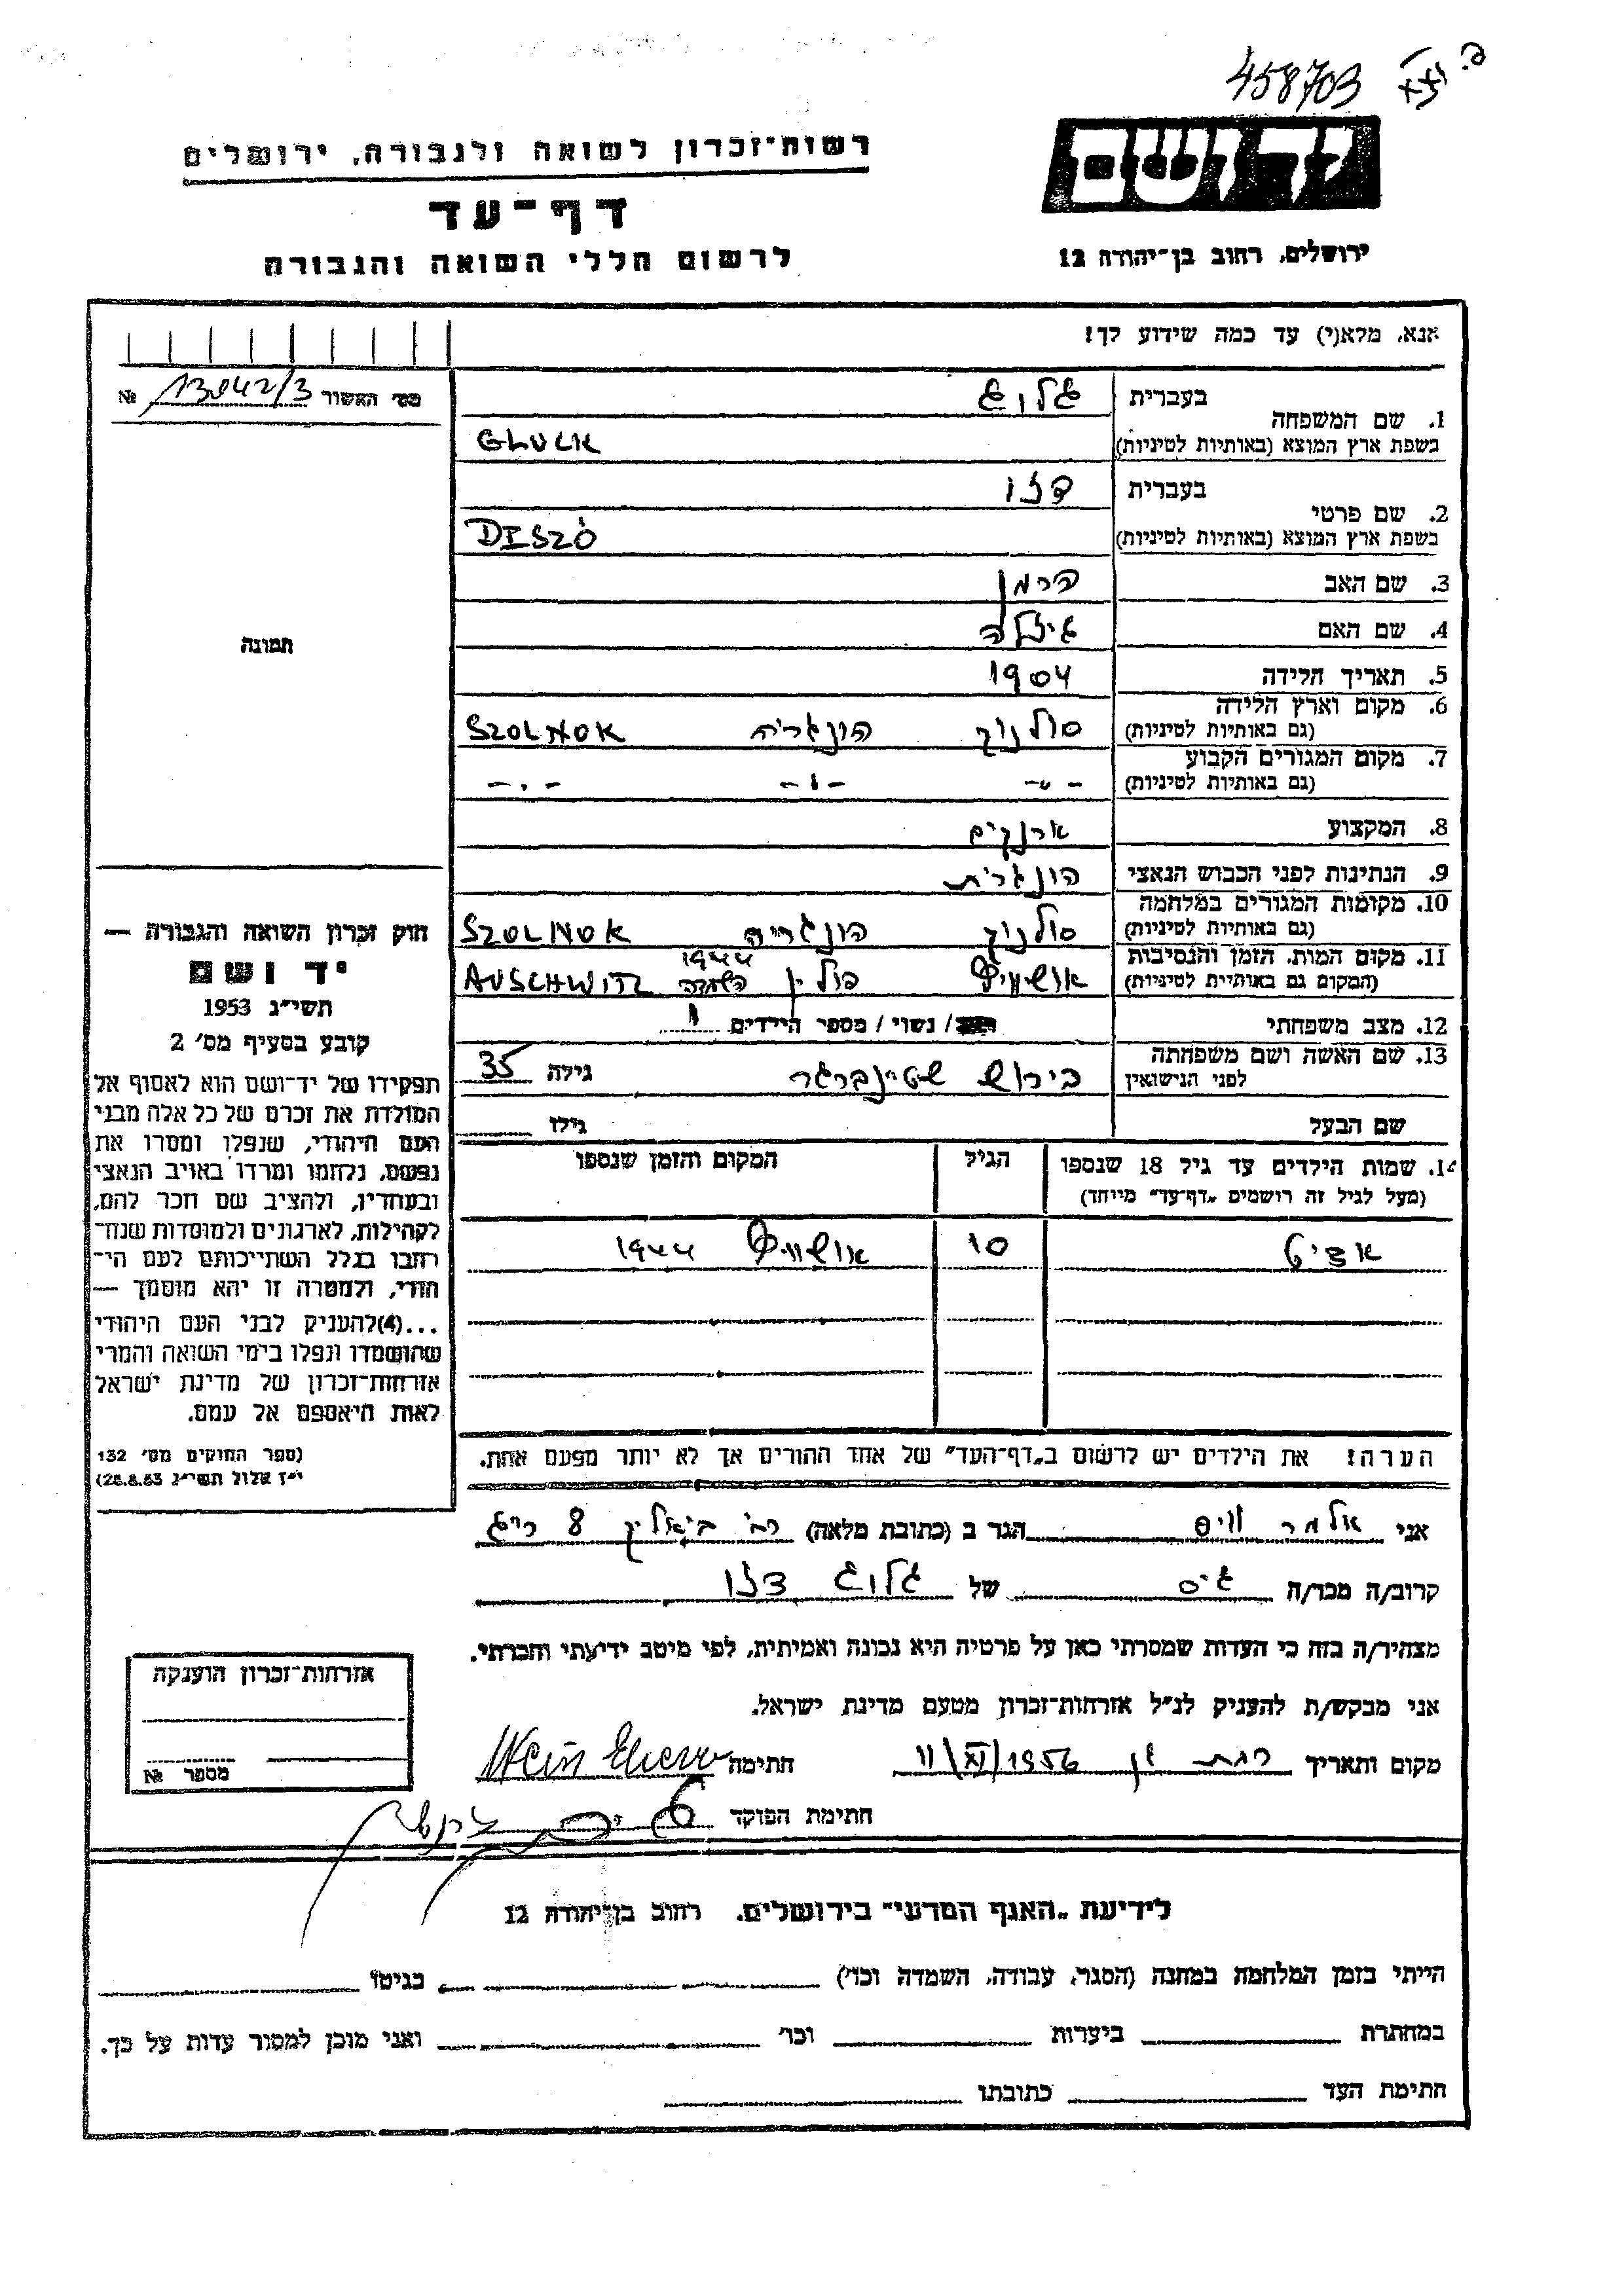 458703
יד ושם
רשות־זכרון לשואה ולגבורה, ירושלים
דף־עד
לרשום חללי השואה והגבורה
ירושלים, רחוב בן־יהודה 12
אנא, מלא(י) עד כמה שידוע לך!
מס׳ האשור 13042/3 №
1. שם המשפחה
בעברית גלוג
בשפת ארץ המוצא (באותיות לטיניות) GLUCK
2. שם פרטי
בעברית דזו
בשפת ארץ המוצא (באותיות לטיניות) DISZÖ
3. שם האב הרמן
4. שם האם גיזלה
5. תאריך הלידה 1904
6. מקום וארץ הלידה
(גם באותיות לטיניות) סולנוק הונגריה SZOLNOK
7. מקום המגורים הקבוע
(גם באותיות לטיניות) -"- -"- -"-
8. המקצוע
9. הנתינות לפני הכבוש הנאצי הונגרית
10. מקומות המגורים במלחמה
(גם באותיות לטיניות) סולנוק הונגריה SZOLNOK
11. מקום המות, הזמן והנסיבות
(המקום גם באותיות לטיניות) אושוויץ פולין 1944 השמדה AUSCHWITZ
12. מצב משפחתי / נשוי / מספר הילדים 1
13. שם האשה ושם משפחתה
לפני הנישואין שטיינברגר גילה 35
שם הבעל גילו
14. שמות הילדים עד גיל 18 שנספו
(מעל לגיל זה רושמים „דף־עד״ מייחד)
הגיל
המקום והזמן שנספו
אדיט 10 אושוויץ 1944
תמונה
חוק זכרון השואה והגבורה —
יד ושם
תשי״ג 1953
קובע בסעיף מס׳ 2
תפקידו של יד־ושם הוא לאסוף אל
המולדת את זכרם של כל אלה מבני
העם היהודי, שנפלו ומסרו את
נפשם, נלחמו ומרדו באויב הנאצי
ובעוזריו, ולהציב שם וזכר להם,
לקהילות, לארגונים ולמוסדות שנח־
רבו בגלל השתייכותם לעם הי־
הודי, ולמטרה זו יהא מוסמך —
...(4)להעניק לבני העם היהודי
שהושמדו ונפלו בימי השואה והמרי
אזרחות־זכרון של מדינת ישראל
לאות היאספם אל עמם.
(ספר החוקים מס׳ 132
י״ז אלול תשי״ג 28.8.53)
הערה! את הילדים יש לרשום ב„דף־העד״ של אחד ההורים אך לא יותר מפעם אחת.
אני אלמר ווייס הגר ב (כתובת מלאה) רח׳ ביאליק 8 ר״ג
קרוב/ה מכר/ה גיס של גלוג דזו
מצהיר/ה בזה כי העדות שמסרתי כאן על פרטיה היא נכונה ואמיתית, לפי מיטב ידיעתי והכרתי.
אני מבקש/ת להעניק לנ״ל אזרחות־זכרון מטעם מדינת ישראל.
מקום ותאריך רמת גן 11/XI/1956 חתימה
חתימת הפוקד
אזרחות־זכרון הוענקה
מספר №
לידיעת „האגף המדעי״ בירושלים, רחוב בן־יהודה 12
הייתי בזמן המלחמה במחנה (הסגר, עבודה, השמדה וכו׳) בגיטו
במחתרת ביערות וכו׳ ואני מוכן למסור עדות על כך.
חתימת העד כתובתו